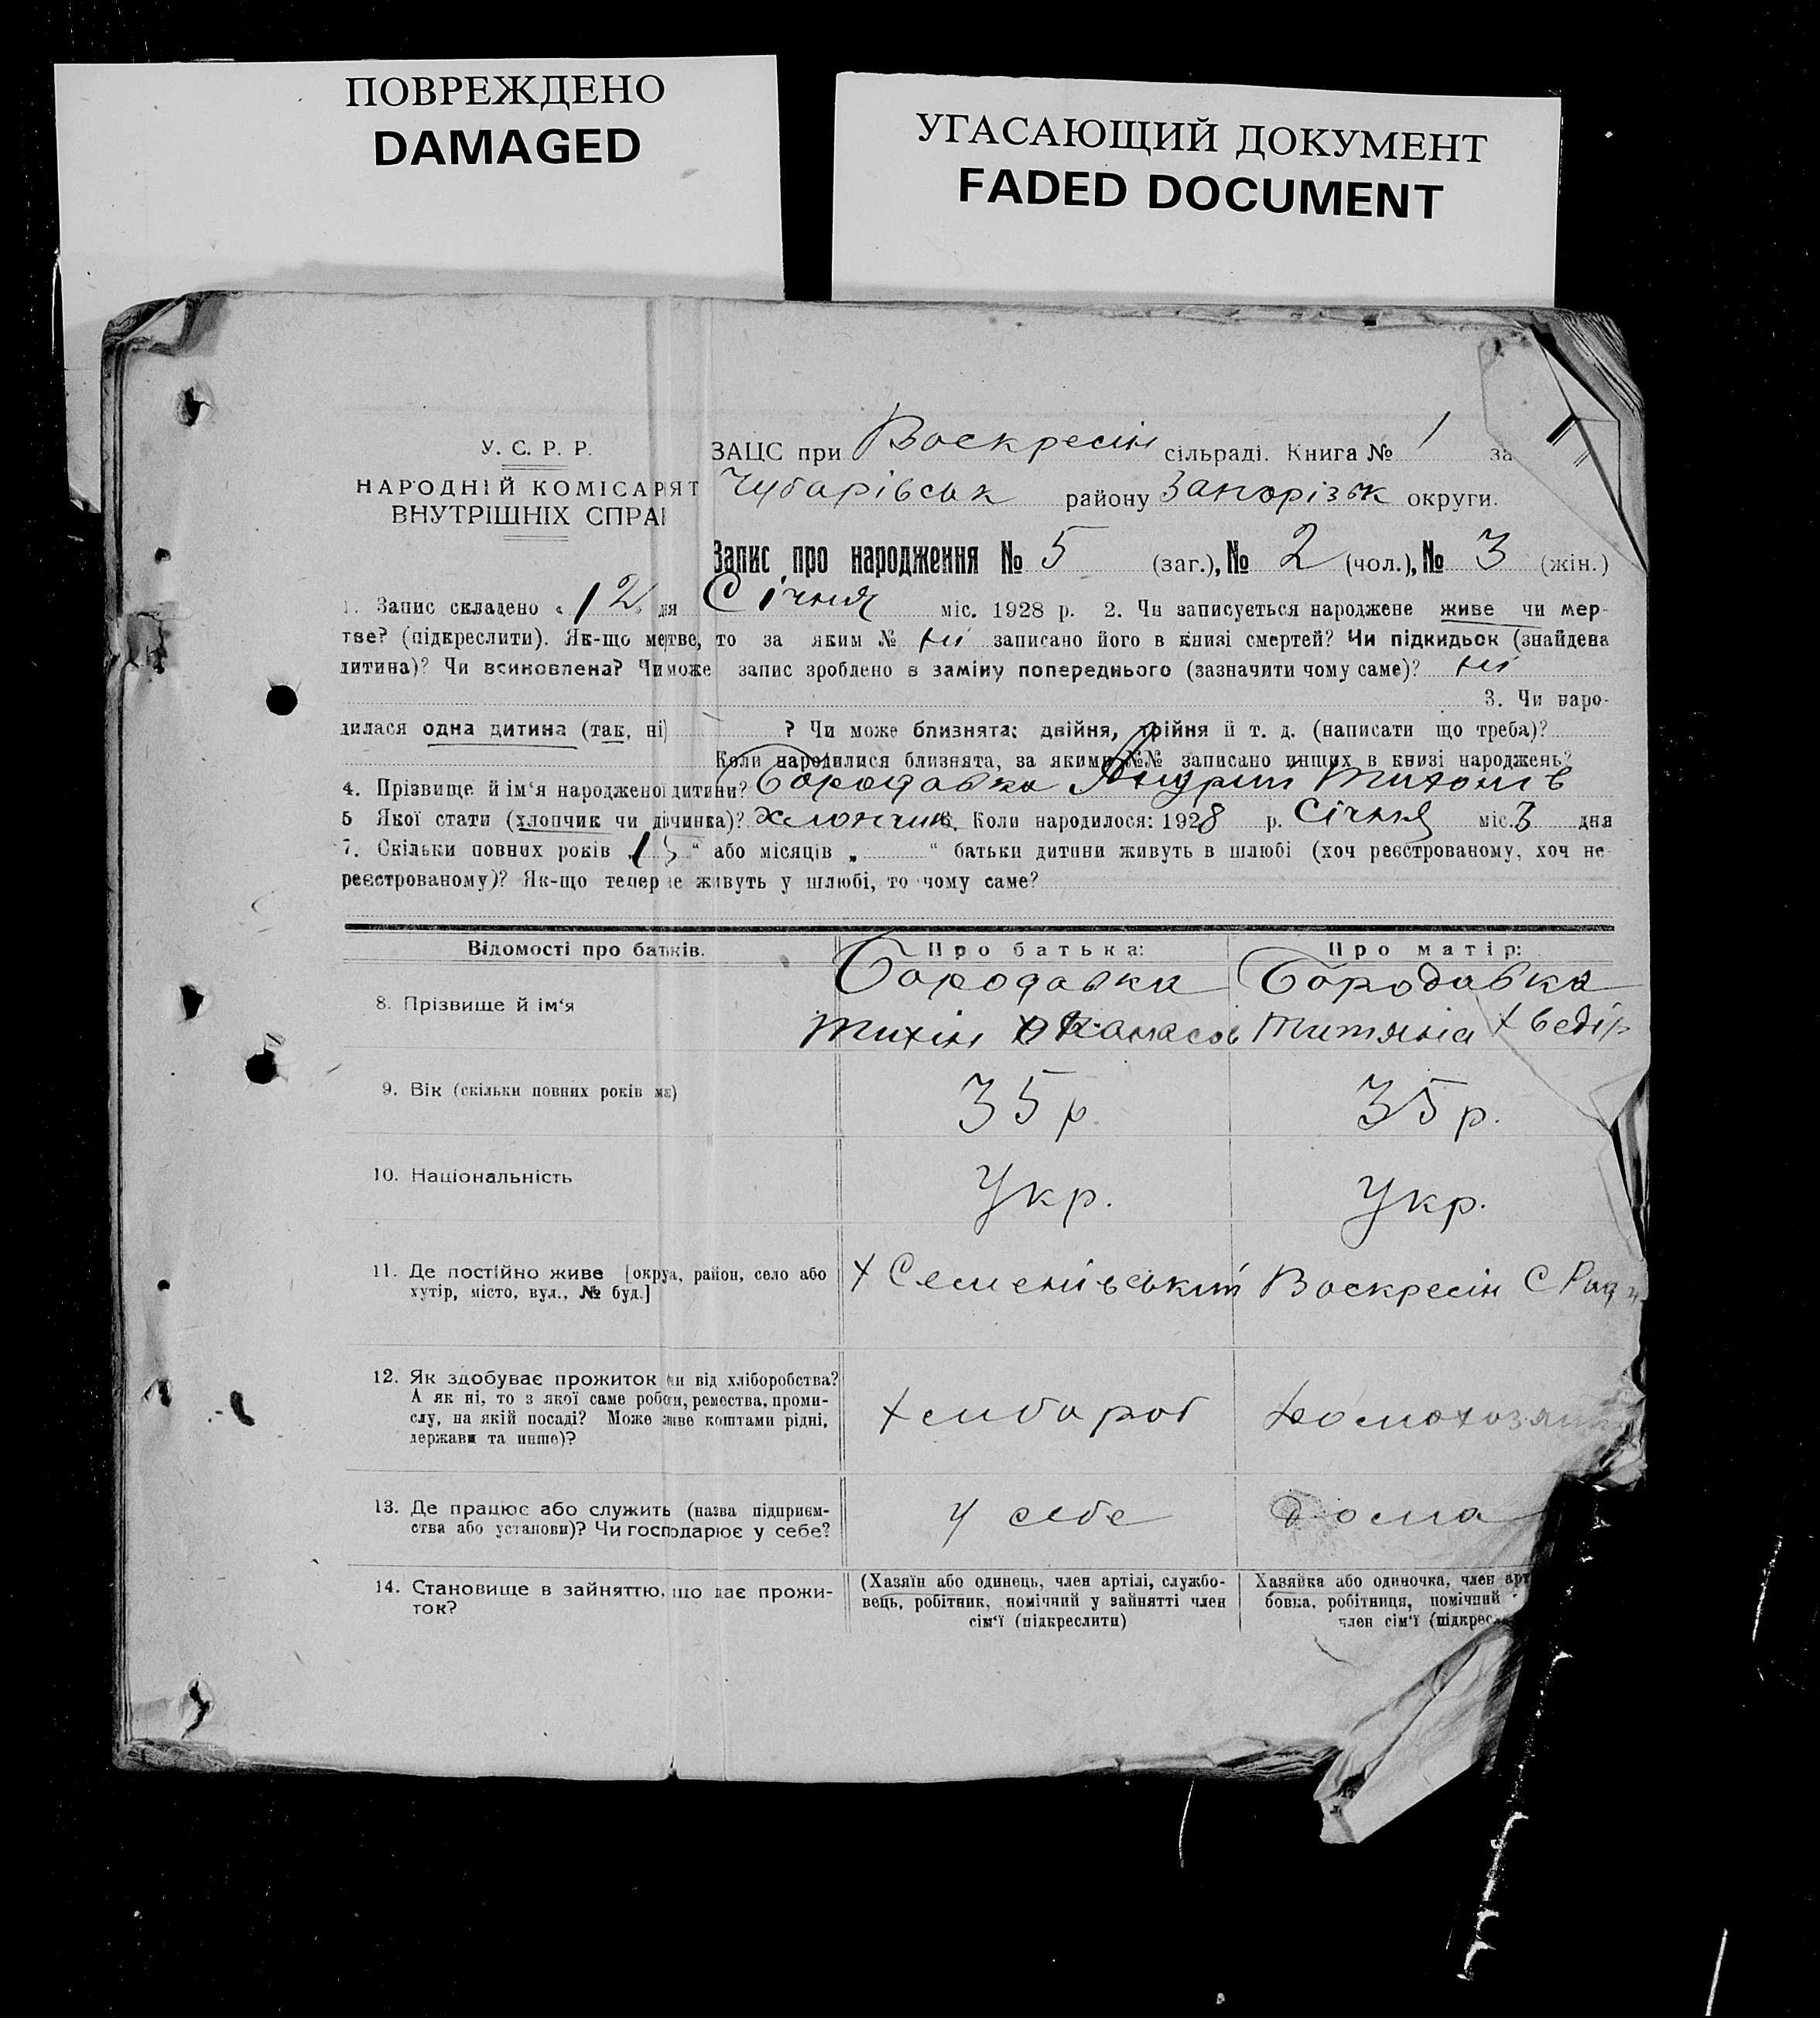 ПОВРЕЖДЕНО
DAMAGED
УГАСАЮЩИЙ ДОКУМЕНТ
FADED DOCUMENT
У. С. Р. Р.
НАРОДНІЙ КОМІСАРІЯТ
ВНУТРІШНІХ СПРА
ЗАЦС при Воскресін сільраді. Книга № 1 за
Чубарівськ району Запорізьк округи.
Запис про народження № 5 (заг.), № 2 (чол.), № 3 (жін.)
1. Запис складено « 12 » дня Січня міс. 1928 р. 2. Чи записується народжене живе чи мер-
тве? (підкреслити). Як-що мертве, то за яким № ні записано його в книзі смертей? Чи підкидьок (знайдена
дитина)? Чи всиновлена? Чи може запис зроблено в заміну попереднього (зазначити чому саме)? ні
3. Чи наро-
дилася одна дитина (так, ні) ? Чи може близнята: двійня, трійня й т. д. (написати що треба)?
Коли народилися близнята, за якими №№ записано инших в книзі народжень?
4. Прізвище й ім'я народженої дитини? Бородавка Андрій Тихонів
5 Якої стати (хлопчик чи дівчинка)? хлопчик 6. Коли народилося: 1928 р. Січня міс. 3 дня
7. Скільки повних років „ 15 “ або місяців „ “ батьки дитини живуть в шлюбі (хоч реєстрованому, хоч не-
реєстрованому)? Як-що тепер не живуть у шлюбі, то чому саме?
Відомості про батьків. Про батька: Про матір:
8. Прізвище й ім'я Бородавка Бородавка
Тихін Панасов Титяна Хведір
9. Вік (скільки повних років має) 35 р. 35 р.
10. Національність Укр. Укр.
11. Де постійно живе [округа, район, село або
хутір, місто, вул., № буд.] х Семенівський Воскресін С Рад
12. Як здобуває прожиток чи від хліборобства?
А як ні, то з якої саме роботи, ремества, проми-
слу, на якій посаді? Може живе коштами рідні,
держави та инше)? хлибороб
13. Де працює або служить (назва підприєм-
ства або установи)? Чи господарює у себе? у себе Дома
14. Становище в зайняттю, що дає прожи-
ток?
(Хазяїн або одинець, член артілі, службо-
вець, робітник, помічний у зайнятті член
сім'ї (підкреслити)
Хазяйка або одиночка, член арт
бовка, робітниця, помічний
член сім'ї (підкресл